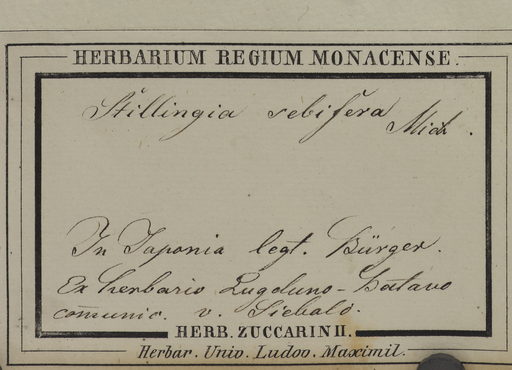 HERBARIUM REGIUM MONACENSE.
Stillingia sebifera Mich.
In Japonia legt. Bürger.
Ex herbario Lugduno-batavo
comunic. v. Siebold.
HERB. ZUCCARINII.
Herbar. Univ. Ludov. Maximil.